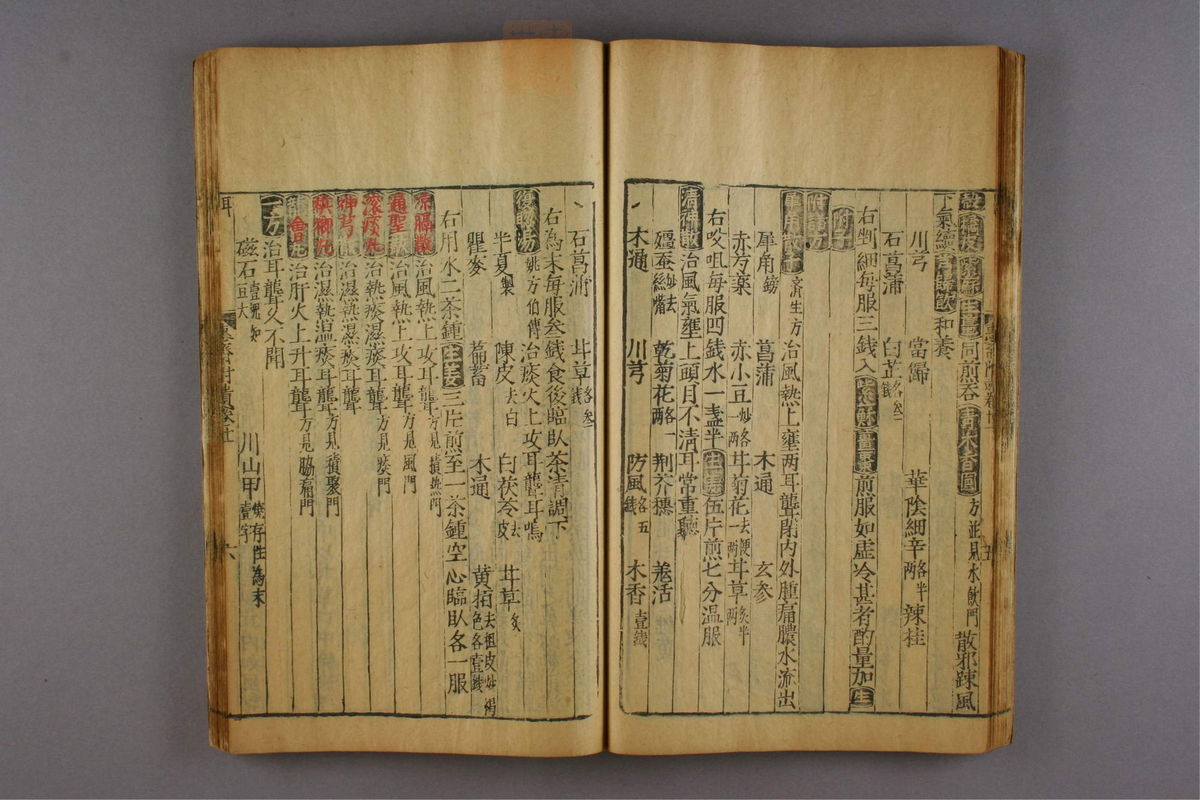 下氣 和養 同煎吞青木香圓方並見水飲門 散邪踈風
川芎 當歸 華陰細辛各半兩 辣桂
石菖蒲 白芷各三錢
右剉細每服三錢入紫蘇薑棗煎服如虛冷甚者酌量加生
附子
附諸方
犀角飲子濟生方治風熱上壅两耳聾閉内外腫痛膿水流出
犀角鎊 菖蒲 木通 玄參
赤芍藥 赤小豆炒各一兩 甘菊花去梗一兩 甘草炙半兩
右㕮咀每服四錢水一盞半生姜伍片煎七分温服
清神散治風氣壅上頭目不清耳常重聽
殭蚕炒去絲嘴 乾菊花各一兩 荆芥穗 羌活
木通 川芎 防風各五錢 木香壹錢
石菖蒲 甘草各叁錢
右為末每服叁錢食後臨臥茶清調下
復聰湯姚方伯傳治痰火上攻耳聾耳鳴
半夏製 陳皮去白 白茯苓去皮 甘草炙
瞿麥 萹蓄 木通 黄栢去粗皮炒褐色各壹錢
右用水二茶鍾生姜三片煎至一茶鍾空心臨臥各一服
凉膈散治風熱上攻耳聾方見積熱門
通聖散治風熱上攻耳聾方見風門
滚痰丸治熱痰濕痰耳聾方見痰門
神芎丸治濕熱濕痰耳聾方見積聚門
治濕熱温痰耳聾方見脇痛門
薈丸治肝火上升耳聾
一方治耳聾久不聞
磁石壹塊如豆大 川山甲燒存性為末壹字
耳
六